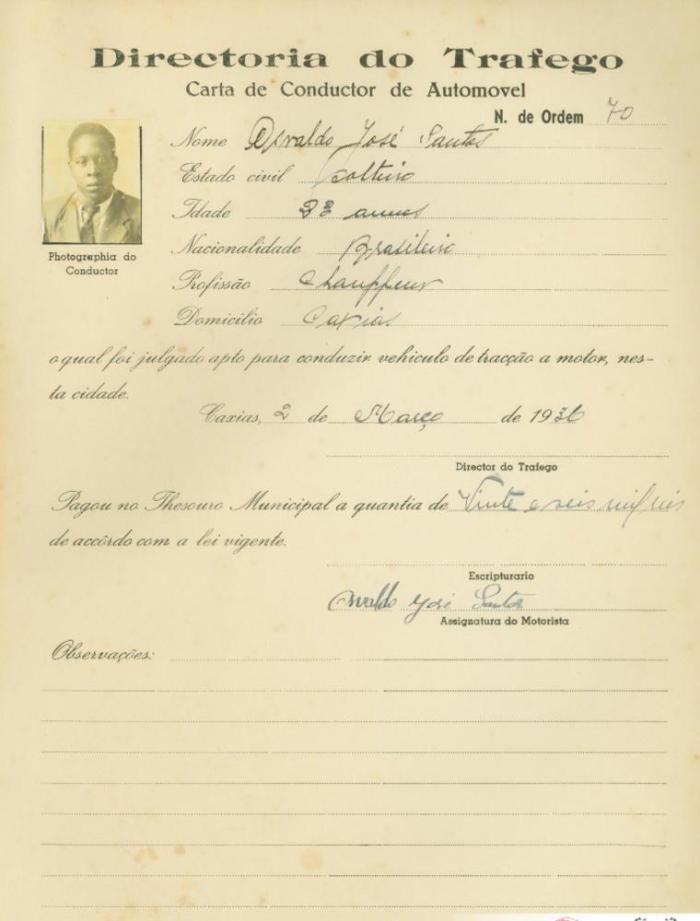 Directoria do Trafego
Carta de Conductor de Automovel
N. de Ordem 70
Nome Osvaldo José Santos
Estado civil solteiro
Idade 33 annos
Nacionalidade Brasileiro
Profissão Chauffeur
Domicilio Caxias
Photographia do
Conductor
o qual foi julgado apto para conduzir vehiculo de tracção a motor, nes-
ta cidade.
Caxias, 2 de Março de 1936
Director do Trafego
Pagou no Thesouro Municipal a quantia de Vinte e seis mil reis
de accôrdo com a lei vigente.
Escripturario
Osvaldo José Santos
Assignatura do Motorista
Observações: